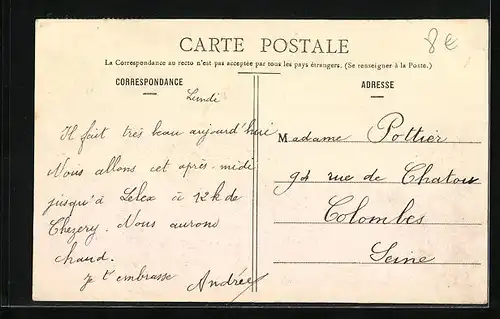 8€
CARTE POSTALE
La Correspondance au recto n'est pas acceptée par tous les pays étrangers. (Se renseigner à la Poste.)
CORRESPONDANCE
ADRESSE
Lundi
Il fait très beau aujourd'hui
Nous allons cet après-midi
jusqu'à Lélex à 12k de
Chezery. Nous aurons
chaud.
je t'embrasse
Andrée
Madame Pottier
94 rue de Chatou
Colombes
Seine